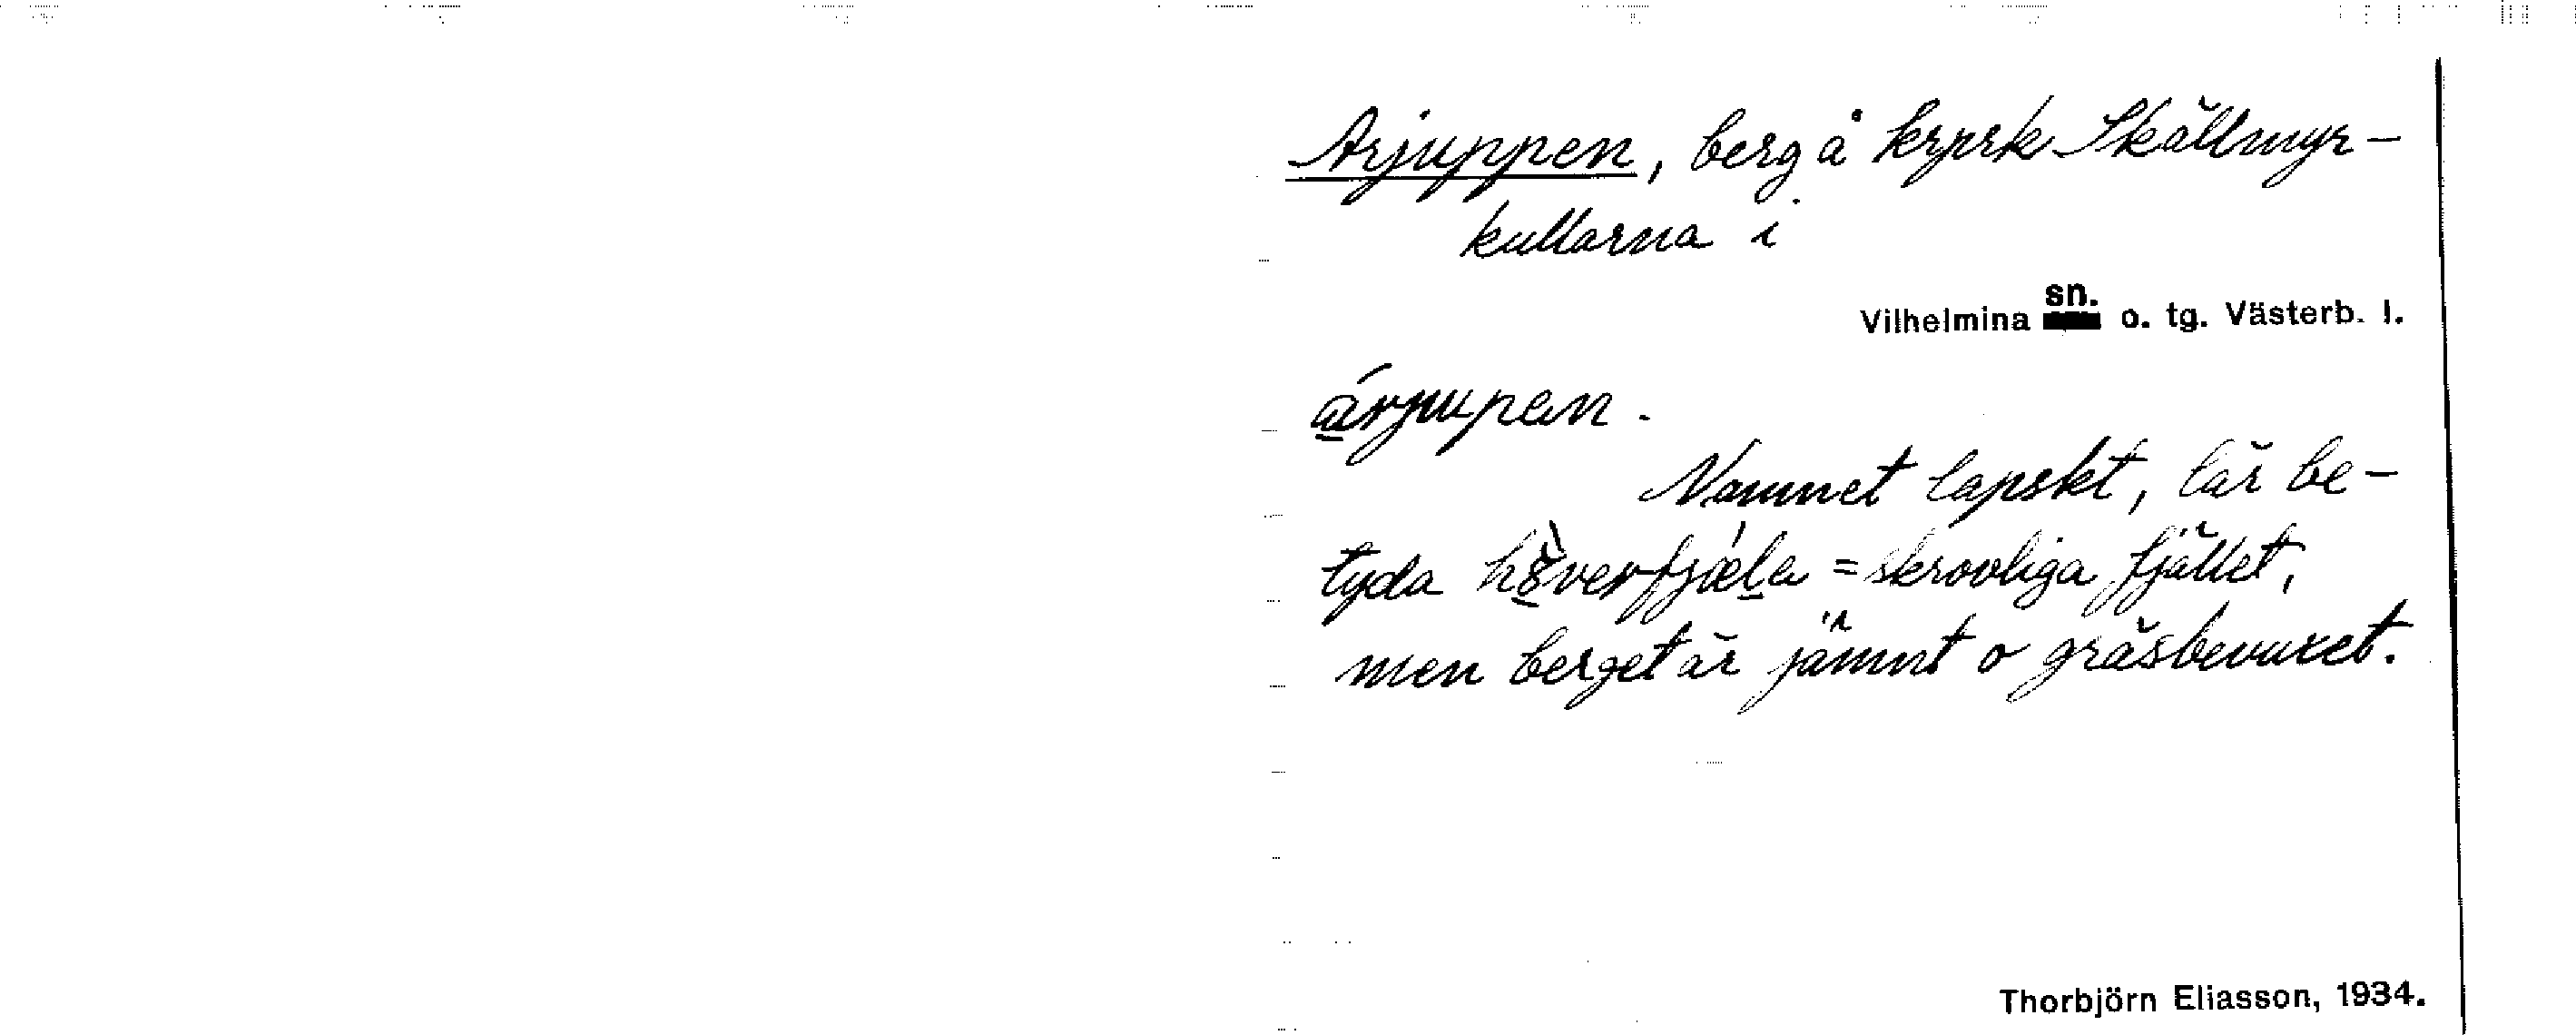 Arjuppen, berg å krprk Skällmyr-
kullarna i
sn.
Vilhelmina o. tg. Västerb. l.
árjupen.
Namnet lapskt, lär be-
tyda = skrovliga fjället,
men berget är jämnt o gräsbevuxet.
Thorbjörn Eliasson, 1934.